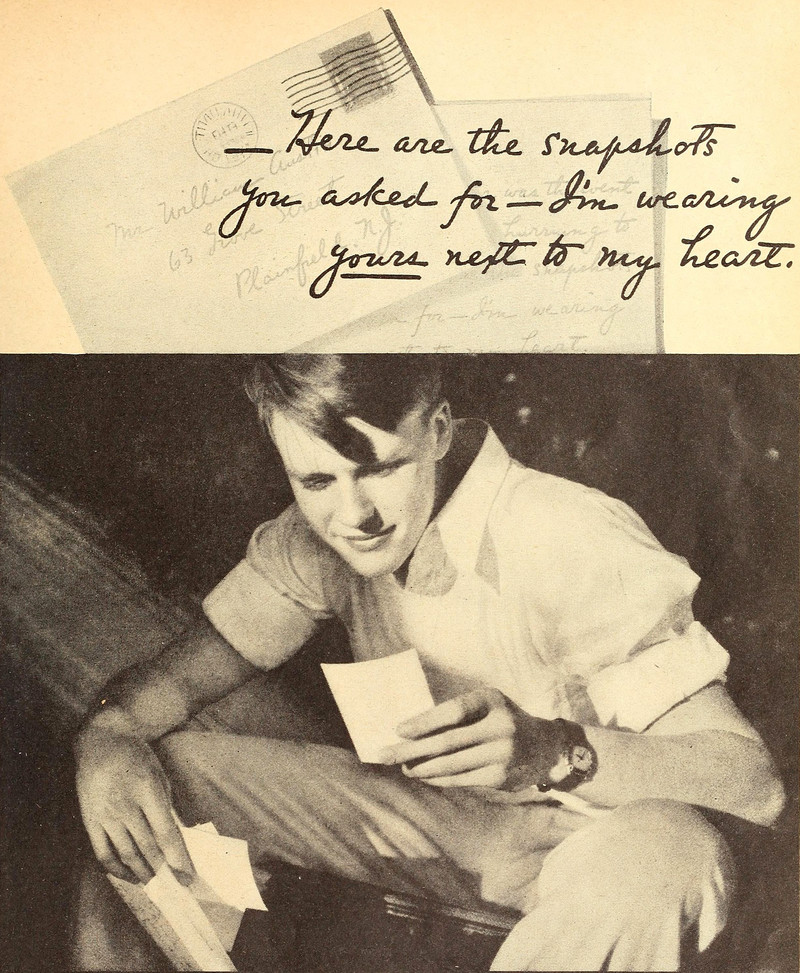 — Here are the snapshots
you asked for — I'm wearing
yours next to my heart.
Mr. William Austin
63 Grove Street
Plainfield, N.J.
was the went
hurrying to
snapshots
for — I'm wearing
to my heart.